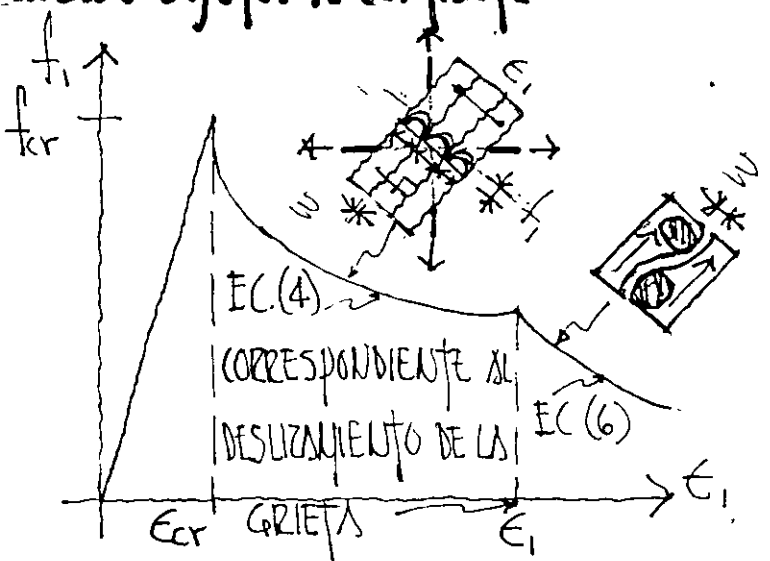 f₁
fcr
ϵ₁
f₁
w
w
EC.(4)
CORRESPONDIENTE AL
DESLIZAMIENTO DE LA
GRIETA
EC(6)
ϵcr
ϵ₁
ϵ₁